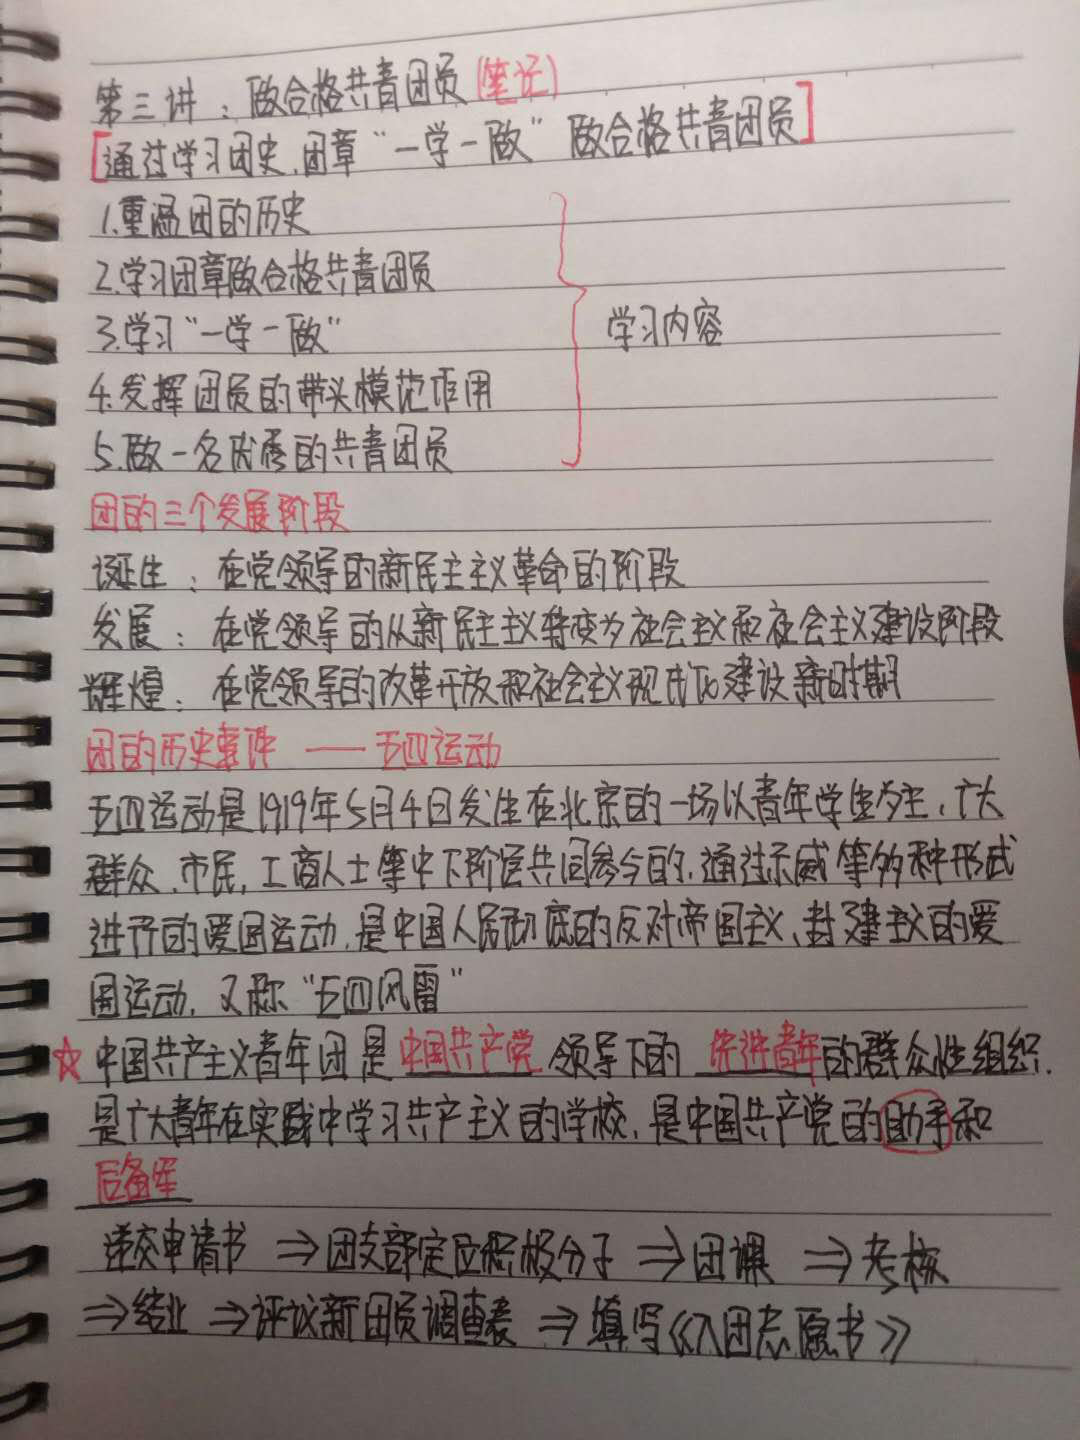 第三讲：做合格共青团员(笔记)
[通过学习团史、团章“一学一做”做合格共青团员]
1.重温团的历史
2.学习团章做合格共青团员
3.学习“一学一做”
学习内容
4.发挥团员的带头模范作用
5.做一名优秀的共青团员
团的三个发展阶段
诞生：在党领导的新民主主义革命的阶段
发展：在党领导的从新民主主义转变为社会主义和社会主义建设阶段
辉煌：在党领导的改革开放和社会主义现代化建设新时期
团的历史事件——五四运动
五四运动是1919年5月4日发生在北京的一场以青年学生为主，广大
群众、市民、工商人士等中下阶层共同参与的，通过示威等多种形式
进行的爱国运动，是中国人民彻底的反对帝国主义、封建主义的爱
国运动，又称“五四风雷”
☆中国共产主义青年团是中国共产党领导下的先进青年的群众性组织，
是广大青年在实践中学习共产主义的学校，是中国共产党的助手和
后备军
递交申请书⇒团支部定应积极分子⇒团课⇒考核
⇒结业⇒评议新团员调查表⇒填写《入团志愿书》